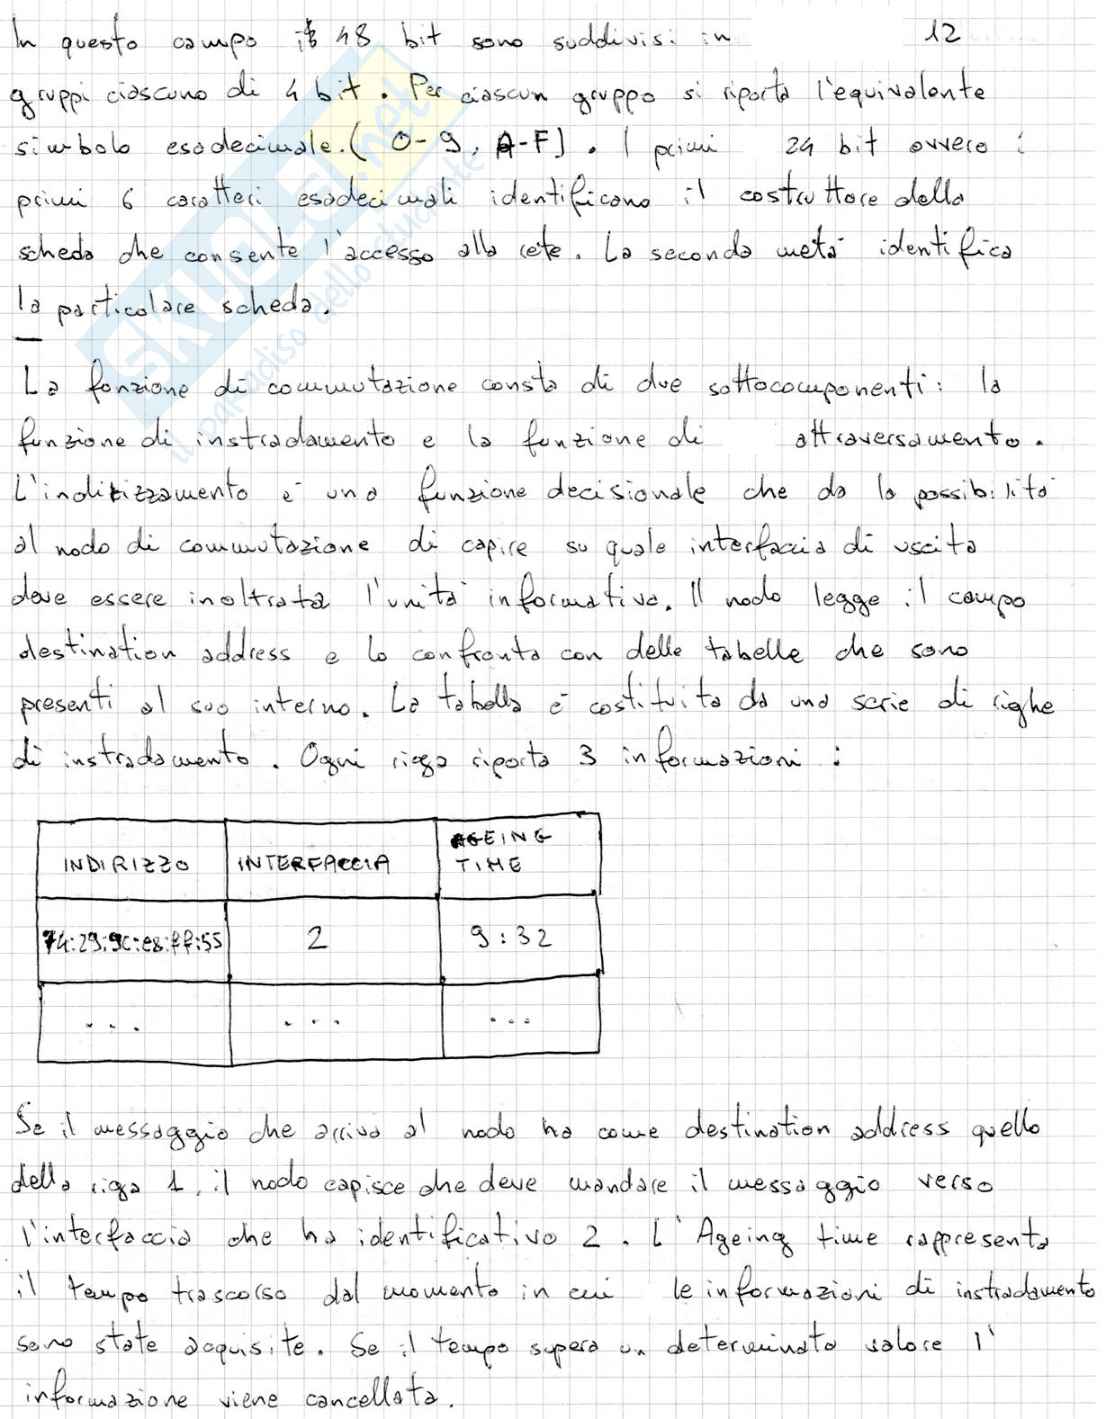 In questo campo i 48 bit sono suddivisi in 12
gruppi ciascuno di 4 bit. Per ciascun gruppo si riporta l'equivalente
simbolo esadecimale. (0-9, A-F). I primi 24 bit ovvero i
primi 6 caratteri esadecimali identificano il costruttore della
scheda che consente l'accesso alla rete. La seconda metà identifica
la particolare scheda.
La funzione di commutazione consta di due sottocomponenti: la
funzione di instradamento e la funzione di attraversamento.
L'indirizzamento è una funzione decisionale che da la possibilità
al nodo di commutazione di capire su quale interfaccia di uscita
deve essere inoltrata l'unità informativa. Il nodo legge il campo
destination address e lo confronta con delle tabelle che sono
presenti al suo interno. La tabella è costituita da una serie di righe
di instradamento. Ogni riga riporta 3 informazioni:
INDIRIZZO INTERFACCIA AGEING TIME
74:29:9c:e8:ff:55 2 9:32
... ... ...
Se il messaggio che arriva al nodo ha come destination address quello
della riga 1, il nodo capisce che deve mandare il messaggio verso
l'interfaccia che ha identificativo 2. L'Ageing time rappresenta
il tempo trascorso dal momento in cui le informazioni di instradamento
sono state acquisite. Se il tempo supera un determinato valore l'
informazione viene cancellata.
SKUOLA.net
il paradiso dello studente